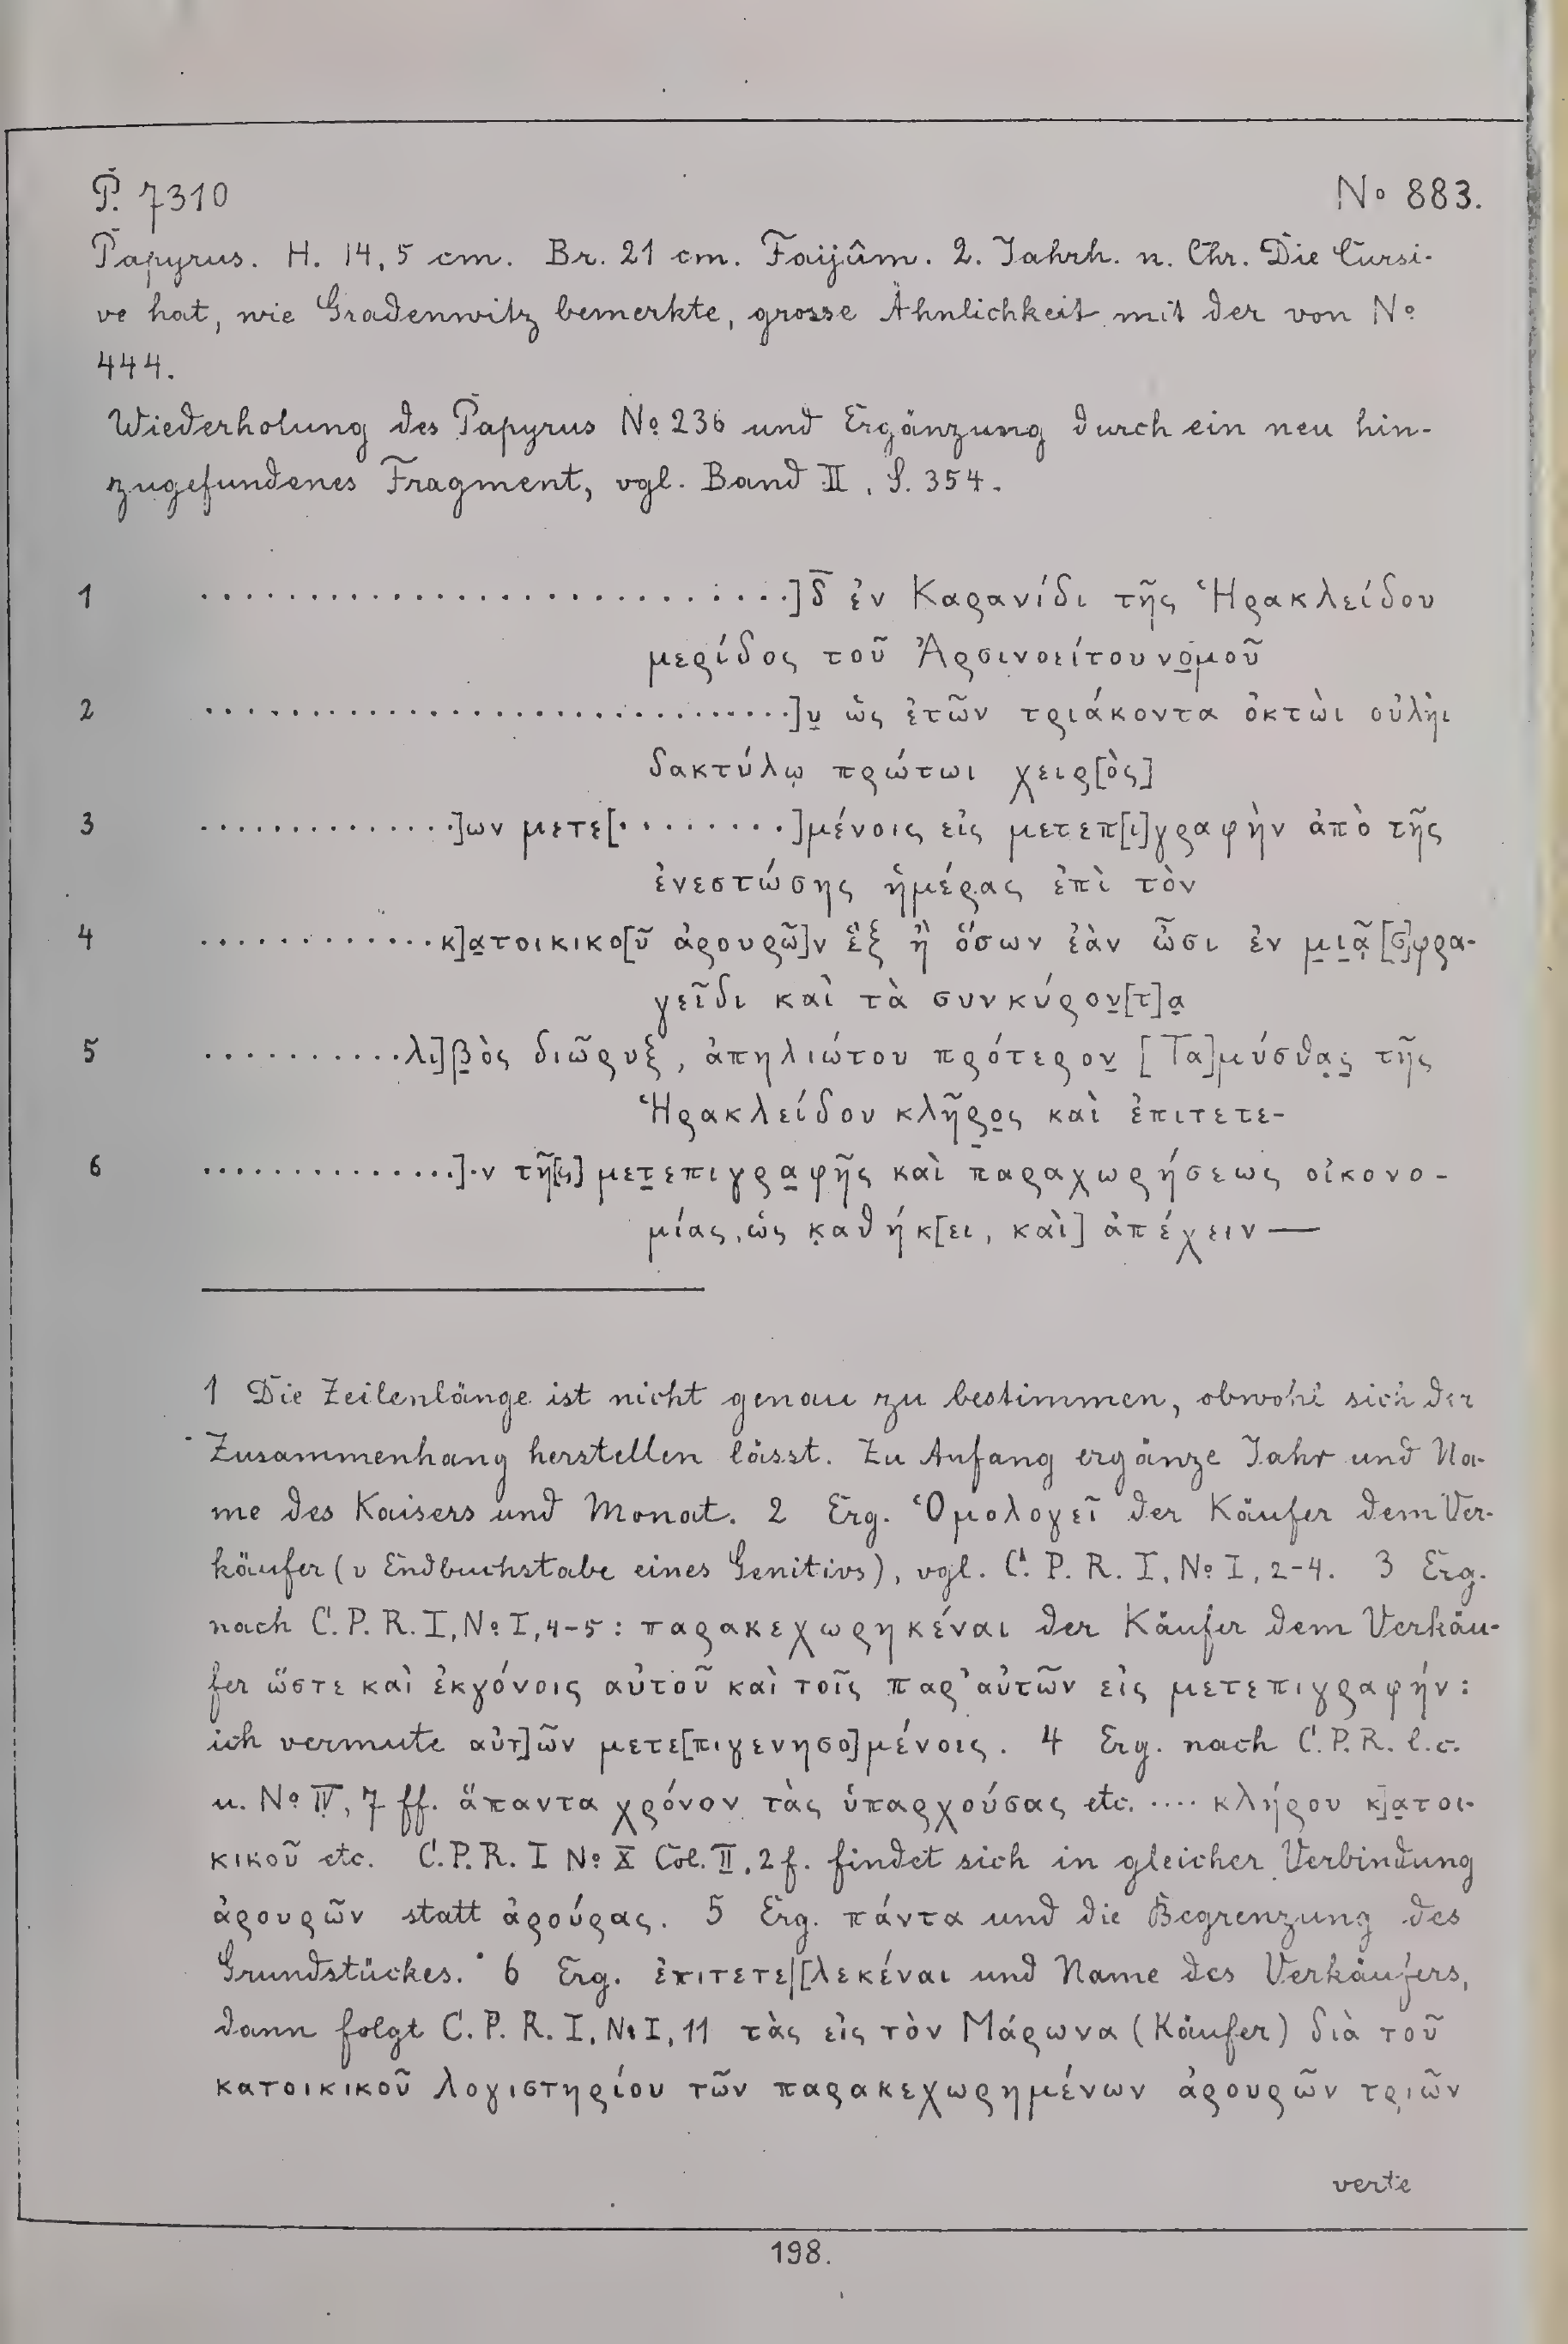 P. 7310 No 883.
Papyrus. H. 14,5 cm. Br. 21 cm. Faijûm. 2. Jahrh. n. Chr. Die Cursi-
ve hat, wie Gradenwitz bemerkte, grosse Ähnlichkeit mit der von No
444.
Wiederholung des Papyrus No 236 und Ergänzung durch ein neu hin-
zugefundenes Fragment, vgl. Band II, S. 354.
1 ............................]δ̅ ἐν Καρανίδι τῆς Ἡρακλείδου
μερίδος τοῦ Ἀρσινοείτου νο̣μοῦ
2 ............................]υ̣ ὡς ἐτῶν τριάκοντα ὀκτὼι οὐλὴι
δακτύλῳ πρώτωι χειρ[ὸς]
3 ..............]ων μετε[........]μένοις εἰς μετεπ[ι]γραφὴν ἀπὸ τῆς
ἐνεστώσης ἡμέρας ἐπὶ τὸν
4 .............κ]α̣τοικικο[ῦ ἀρουρῶ]ν ἓξ ἢ ὅσων ἐὰν ὦσι ἐν μ̣ι̣ᾷ̣ [σ]φρα-
γεῖδι καὶ τὰ συνκύρον̣[τ]α̣
5 ...........λι]β̣ὸς διῶρυξ, ἀπηλιώτου πρότερον̣ [Τα]μύσθα̣ς̣ τῆς
Ἡρακλείδου κλῆρ̣ο̣ς καὶ ἐπιτετε-
6 ..............]·ν τῆ[ς] μετ̣επιγρα̣φῆς καὶ παραχωρήσεως οἰκονο-
μίας, ὡς κ̣αθήκ[ει, καὶ] ἀπέχειν —
1 Die Zeilenlänge ist nicht genau zu bestimmen, obwohl sich der
Zusammenhang herstellen lässt. Zu Anfang ergänze Jahr und Na-
me des Kaisers und Monat. 2 Erg. Ὁμολογεῖ der Käufer dem Ver-
käufer (υ Endbuchstabe eines Genitivs), vgl. C. P. R. I, No I, 2-4. 3 Erg.
nach C. P. R. I, No I, 4-5: παρακεχωρηκέναι der Käufer dem Verkäu-
fer ὥστε καὶ ἐκγόνοις αὐτοῦ καὶ τοῖς παρ' αὐτῶν εἰς μετεπιγραφήν:
ich vermute αὐτ]ῶν μετε[πιγενησο]μένοις. 4 Erg. nach C. P. R. l. c.
u. No IV, 7 ff. ἅπαντα χρόνον τὰς ὑπαρχούσας etc. .... κλήρου κ]α̣τοι-
κικοῦ etc. C. P. R. I No X Col. II, 2 f. findet sich in gleicher Verbindung
ἀρουρῶν statt ἀρούρας. 5 Erg. πάντα und die Begrenzung des
Grundstückes. 6 Erg. ἐπιτετε|[λεκέναι und Name des Verkäufers,
dann folgt C. P. R. I, No I, 11 τὰς εἰς τὸν Μάρωνα (Käufer) διὰ τοῦ
κατοικικοῦ λογιστηρίου τῶν παρακεχωρημένων ἀρουρῶν τριῶν
verte
198.